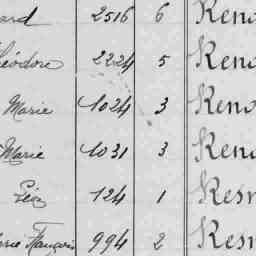 ard 2516 6 Keno
éodore 2224 5 Keno
Marie 1024 3 Keno
Marie 1031 3 Kena
Léon 124 1 Kesn
arie François 994 2 Kesn